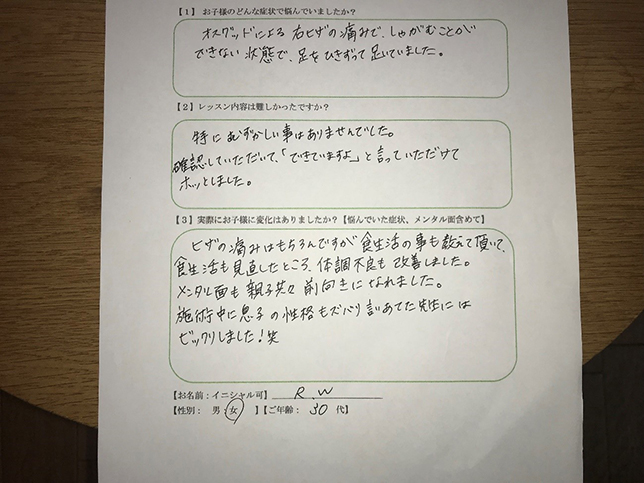 【1】 お子様のどんな症状で悩んでいましたか?
オスグッドによる 右ヒザの痛みで、しゃがむことが
できない 状態で、足をひきずって 歩いていました。
【2】 レッスン内容は難しかったですか?
特に むずかしい事はありませんでした。
確認していただいて、「できていますよ」と言っていただけて
ホッとしました。
【3】 実際にお子様に変化はありましたか?【悩んでいた症状、メンタル面含めて】
ヒザの痛みはもちろんですが 食生活の事も教えて頂いて、
食生活も見直したところ、体調不良も 改善しました。
メンタル面も 親子共々 前向きに なれました。
施術中に息子の性格もズバリ 言いあてた先生には
ビックリしました!笑
【お名前:イニシャル可】 R.W
【性別: 男・女 】【ご年齢: 30 代】